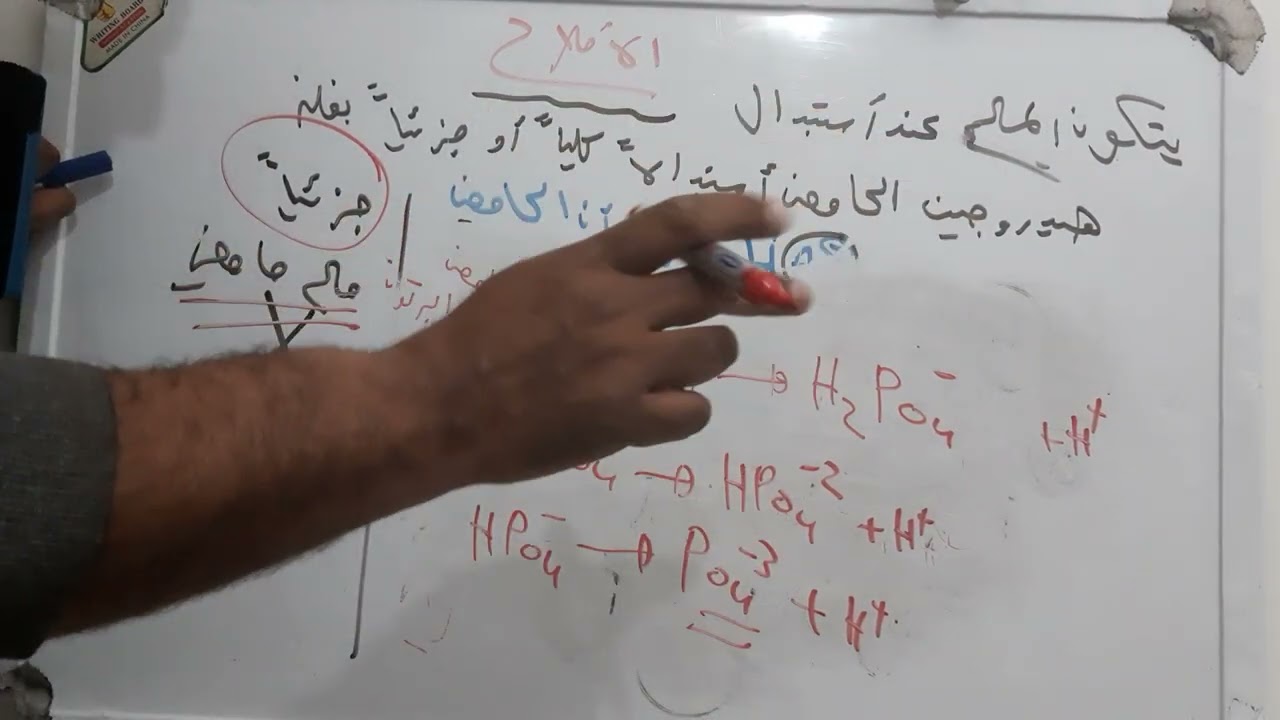 WRITING BOARD
MADE IN CHINA
الأملاح
يتكون الملح عند أستبدال
هيدروجين الحامض أستبدالاً كلياً أو جزئياً بفلز
الحامض
جزئياً
ملح حامض
→ H2PO4⁻ + H⁺
O4 → HPO4⁻² + H⁺
HPO4⁻ → PO4⁻³ + H⁺